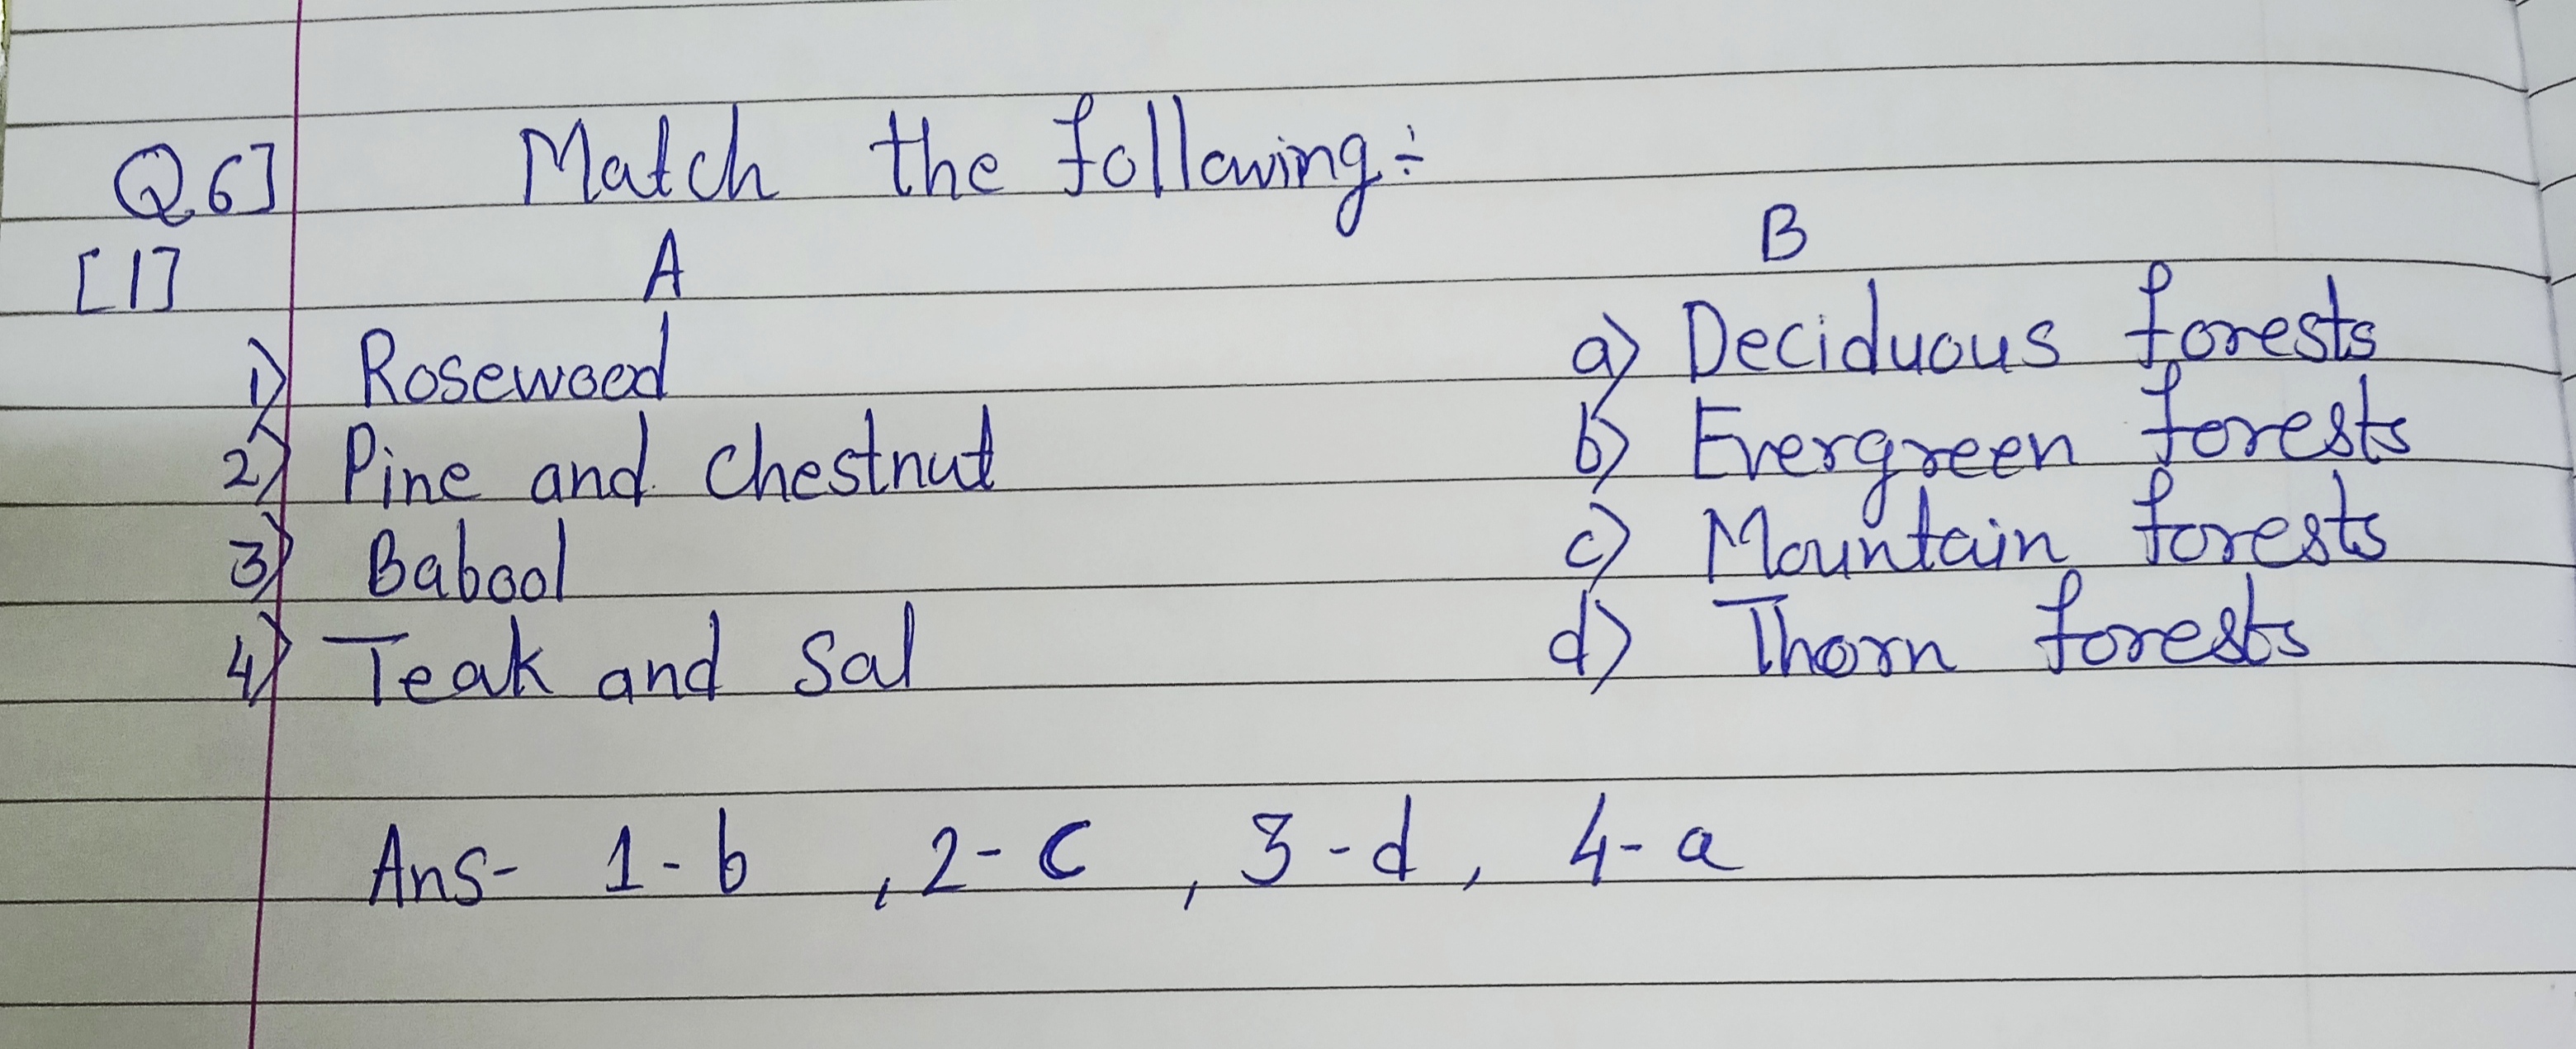 Q.6] Match the following÷
[1] A B
1) Rosewood a) Deciduous forests
2) Pine and chestnut b) Evergreen forests
3) Babool c) Mountain forests
4) Teak and Sal d) Thorn forests
Ans- 1-b , 2-c , 3-d , 4-a